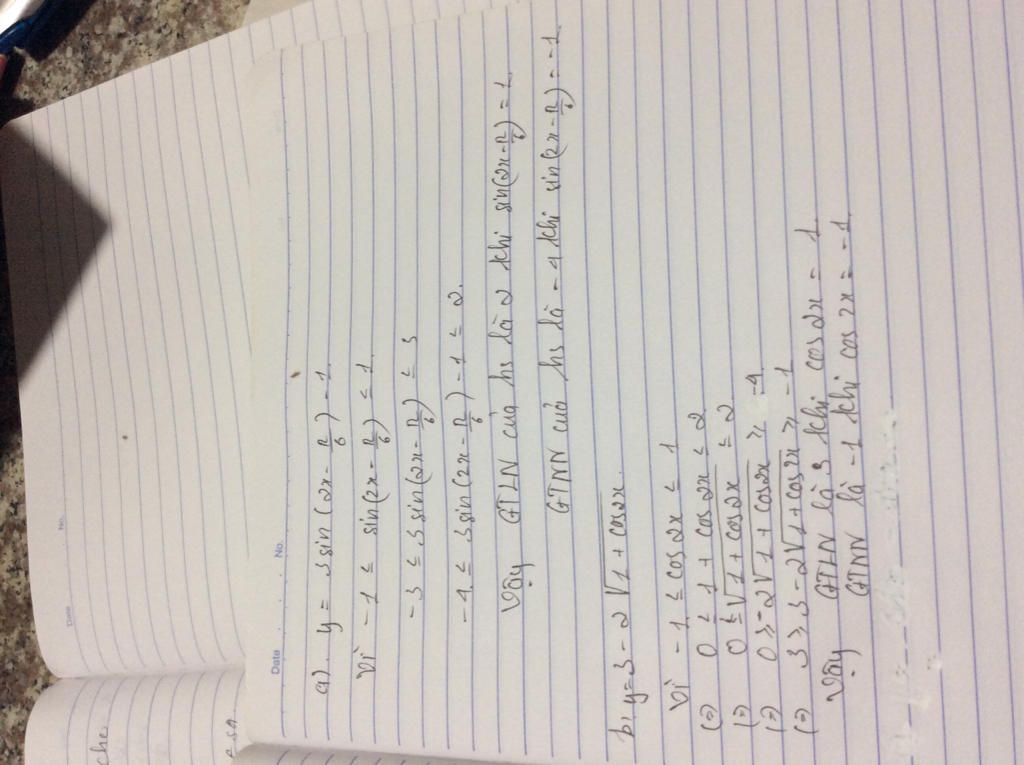 Date
No.
che
e sa
Date
No.
a). y = 3 sin (2x - π/6) - 1.
Vì -1 ≤ sin(2x - π/6) ≤ 1
-3 ≤ 3 sin(2x - π/6) ≤ 3
-4 ≤ 3 sin(2x - π/6) - 1 ≤ 2.
Vậy GTLN của hs là 2 khi sin(2x - π/6) = 1
GTNN của hs là -4 khi sin(2x - π/6) = -1
b, y = 3 - 2√1 + cos2x.
Vì -1 ≤ cos2x ≤ 1
(=) 0 ≤ 1 + cos2x ≤ 2
(=) 0 ≤ √1 + cos2x ≤ 2
(=) 0 ≥ -2√1 + cos2x ≥ -4
(=) 3 ≥ 3 - 2√1 + cos2x ≥ -1
Vậy GTLN là 3 khi cos2x = 1
GTNN là -1 khi cos 2x = -1.